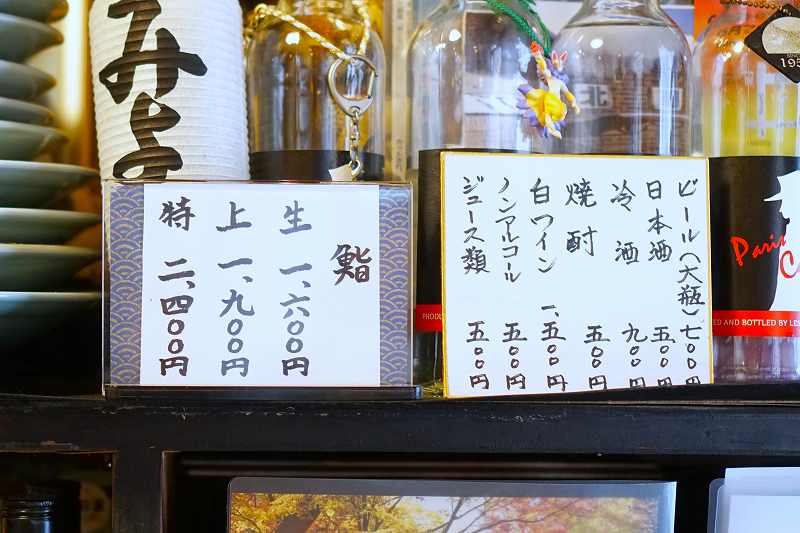 みよ
鮨
生 一、六〇〇円
上 一、九〇〇円
特 二、四〇〇円
ビール(大瓶)七〇〇円
日本酒 五〇〇円
冷酒 九〇〇円
焼酎 五〇〇円
白ワイン 一、五〇〇円
ノンアルコール 五〇〇円
ジュース類 五〇〇円
北
195
Paris
PRODU
ED AND BOTTLED BY LES